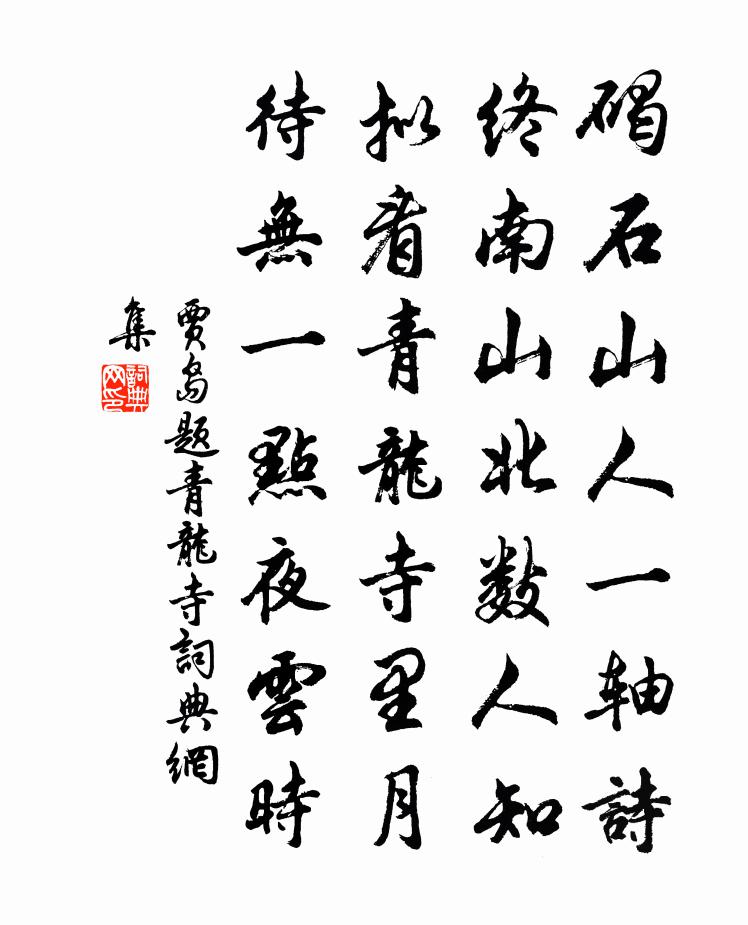 碣石山人一轴詩
終南山北数人知
拟看青龍寺里月
待無一點夜雲時
賈島題青龍寺詞典網
集
詞典网印